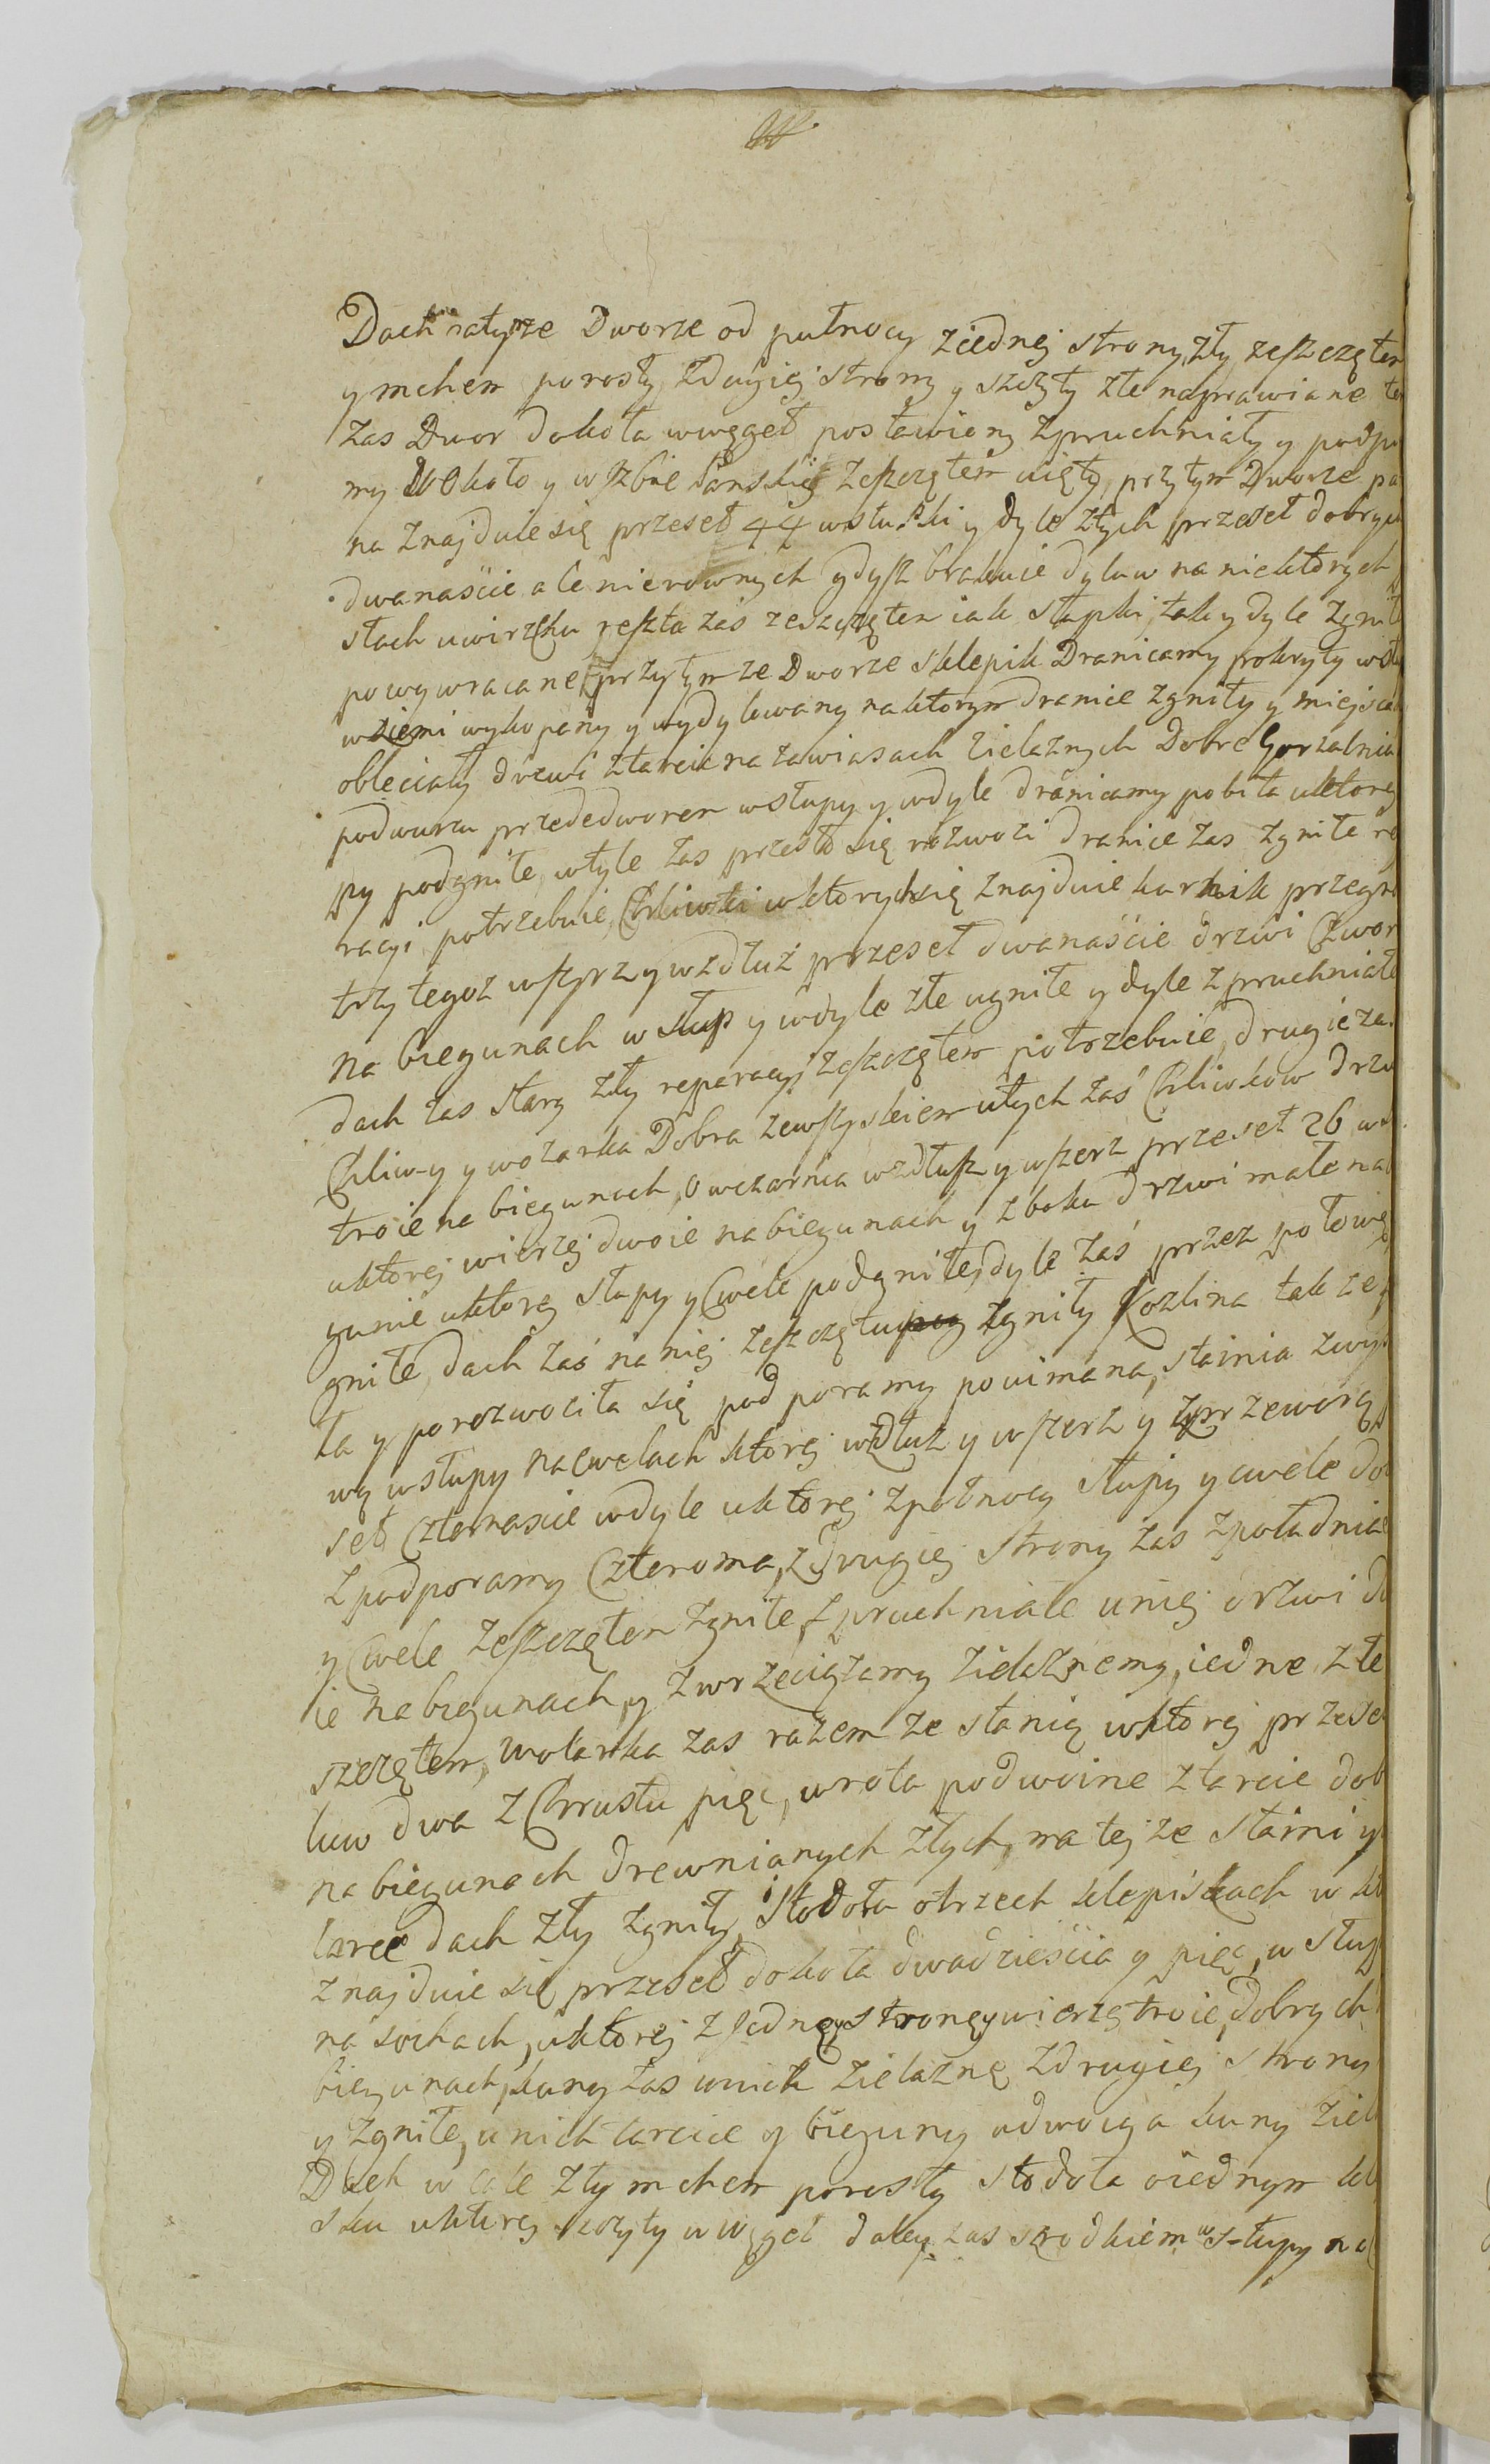 Dach natymze Dworze od pułnocy ziednej strony zły zeszczętem
y mchem porosły, zdugiej strony y szczyty złe naprawiane te
zas Dwor dokoła wwęgeł postawiony zpruchniały y podpo
my Wokoło y wJzbie Panskiej zeszczętem uięty, przytym Dworze pa
na znajduie się przeseł 44 wsłupki y dyle złych przeseł dobrych
dwanaście ale nierownych gdysz brakuie dyluw na niektorych
słach uwirzchu reszta zaś zeszczętem iak słupki, tak y dyle zgniłe
powywracane przytymze Dworze sklepik Dranicamy pokryty wdy
wziemi wykopany y wydylowany naktorym dranice zgniły y miejsca
obleciały drzwi ztarcic na zawiasach zielaznych Dobre Gorzalnia
podwurzu przededworem wsłupy y wdyle dranicamy pobita uktorej
py podgniłe, wtyle zas przesło się rozwozi dranice zas zgniłe re
racyi potrzebuie, Chliwki wktorych się znajduie karmik przegro
trzy tegoz wszyrz y wzdłuż przeseł dwanaście drzwi Czwor
na biegunach wsłup y wdyle złe ugniłe y dyle zpruchniałe
dach zas stary zły reparacyi zeszczętem potrzebuie, drugie za
Chliw-y y wozarka Dobra zewszyskiem utych zaś Chliwkow drzw
troie na biegunach, owczarnia wzdłusz y wszerz przeseł 26 ws
uktorej wierzej dwoie na biegunach y zboku drzwi małe na
gunie uktorej słupy y Cwele podgniłe, dyle zaś przez połowę
gniłe, dach zaś na niej zeszczętu zgniły Kozlina takze
ła y porozwociła się podporamy powimana, stainia zwy
wy wsłupy nacwelach ktorej wzdłuż y wszerz y zprzeworą
seł czternascie wdyle uktorej zpołnocy słupy y cwele do
zpodporamy Czteroma, zdrugiej strony zas zpołudnia
y Cwele zeszczętem zgniłe, zpruchniałe uniej drzwi d
ie na biegunach, y zwrzeciązamy zielaznemy, iedne złe
szczętem, Wolarka zas razem ze stanią wktorej przese
luw dwa zChrustu pięc, wrota podwoine ztarcic dob
na biegunach drewnianych złych, na tejze stamni y
larce dach zły zgniły, Stodoła otrzech klepiskach w kt
znajduie się przeseł dokoła dwadzieścia y pięc, w słup
na sochach, uktorej zJednej strony wierzej troie, dobrych
biegunach, kuny zas unich zielazne zdrugiej strony
y zgniłe, unich tarcice y bieguny udwoiga kuny ziel
Dach w cale zły mchem porosły stodoła oiednym kl
sku uktorej sczyty wwęgeł daley zas szrodkiem w słupy na